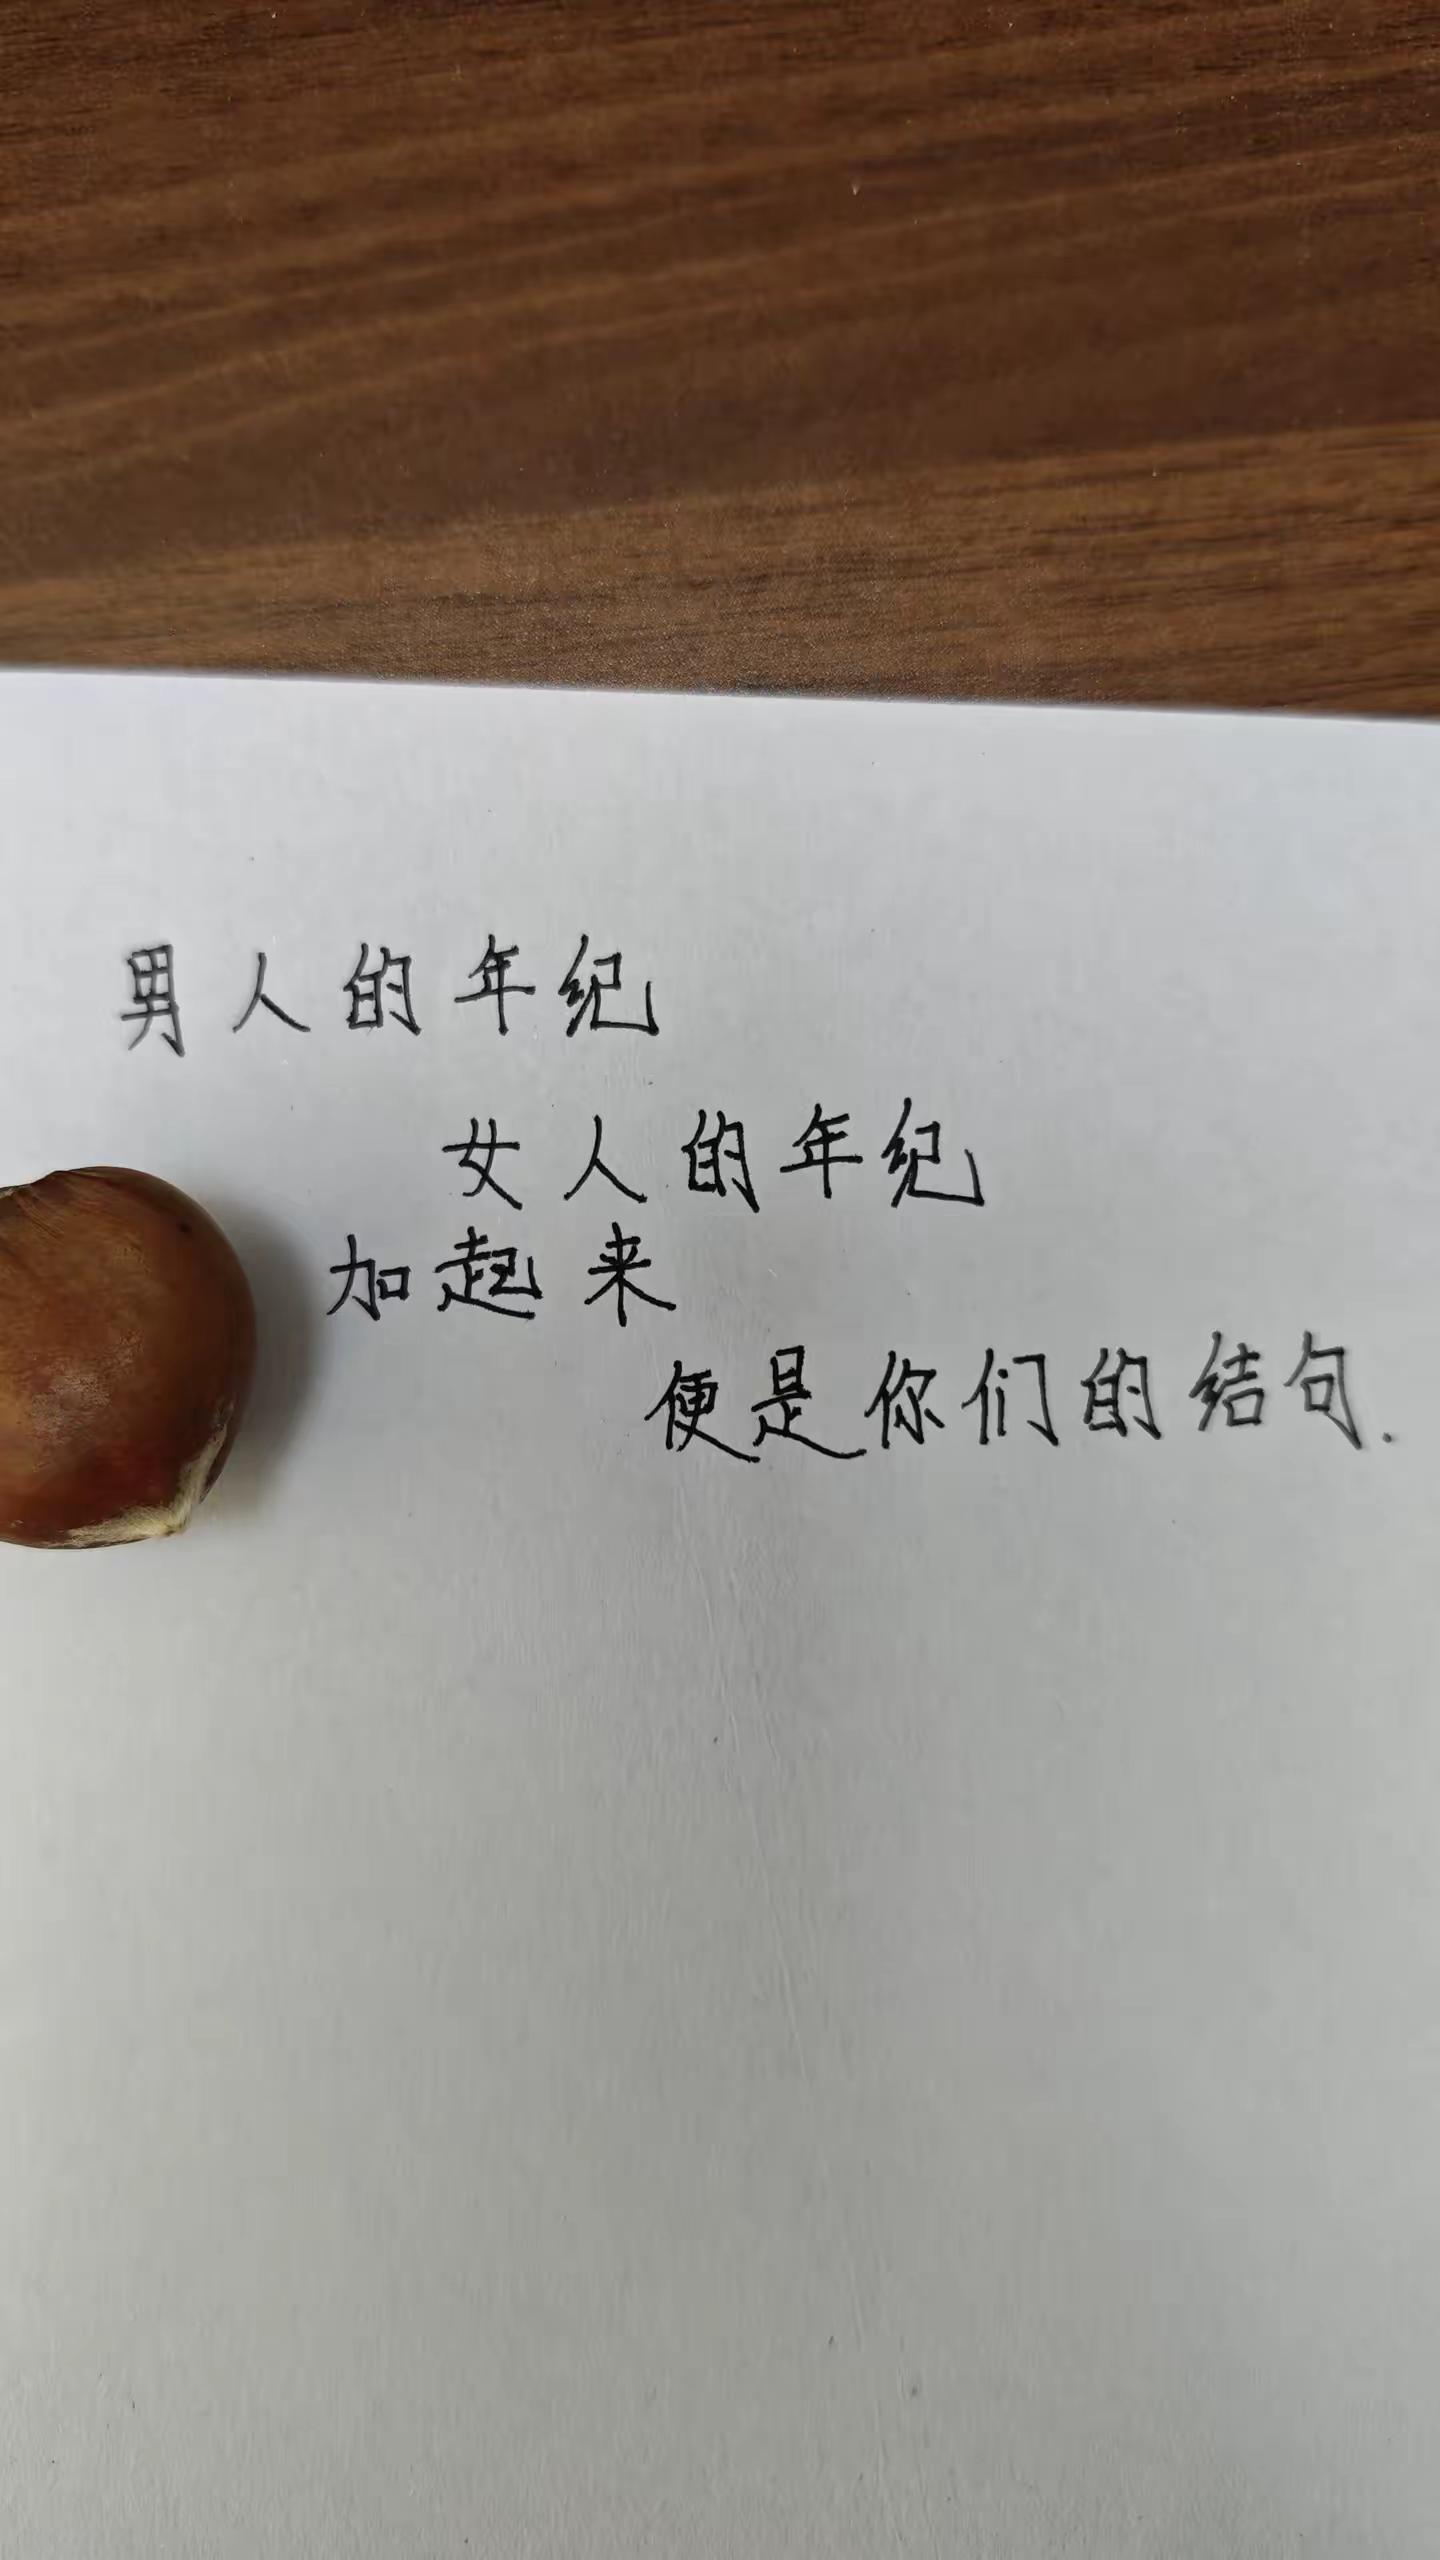 男人的年纪
女人的年纪
加起来
便是你们的结句.